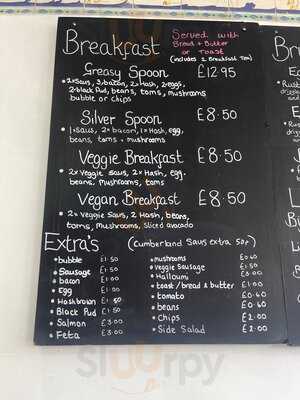 Breakfast
Served with
Bread + Butter
or Toast
(includes 1 Breakfast Tea)
Greasy Spoon £12.95
• 2xSaus, 3xbacon, 2xHash, 2xeggs,
2xblack Pud, beans, toms, mushrooms
bubble or chips
Silver Spoon £8.50
• 1xsaus, 2x bacon, 1x Hash, egg,
beans, toms + mushrooms
Veggie Breakfast £8.50
• 2x Veggie saus, 2x Hash, egg,
beans, Mushrooms, toms
Vegan Breakfast £8.50
• 2x Veggie Saus, 2 Hash, beans,
toms, Mushrooms, Sliced avocado
Extra's (Cumberland Saus extra 50p)
• bubble £1.50
• Sausage £1.50
• bacon £1.00
• egg £1.00
• Hashbrown £1.50
• Black Pud £1.50
• Salmon £3.00
• Feta £3.00
• mushrooms £0.60
• Veggie Sausage £1.50
• Halloumi
• toast/bread & butter £1.00
• tomato £0.60
• beans £0.60
• Chips £2.00
• Side Salad £2.00
Sluurpy